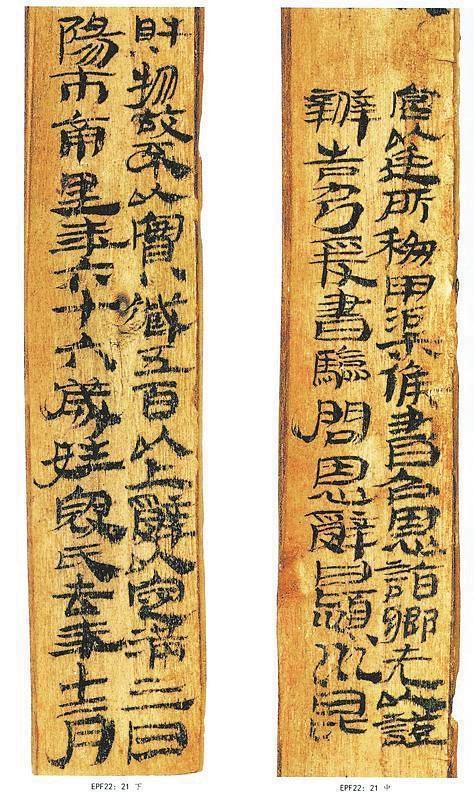 宫以廷所移甲渠候書召恩詣鄉先以證
辨告乃爰書驗問恩辭曰潁川昆
財物故不以實臧五百以上辭以定滿三日
陽市南里年六十六歲姓寇氏去年十二月
EPF22: 21 中
EPF22: 21 下